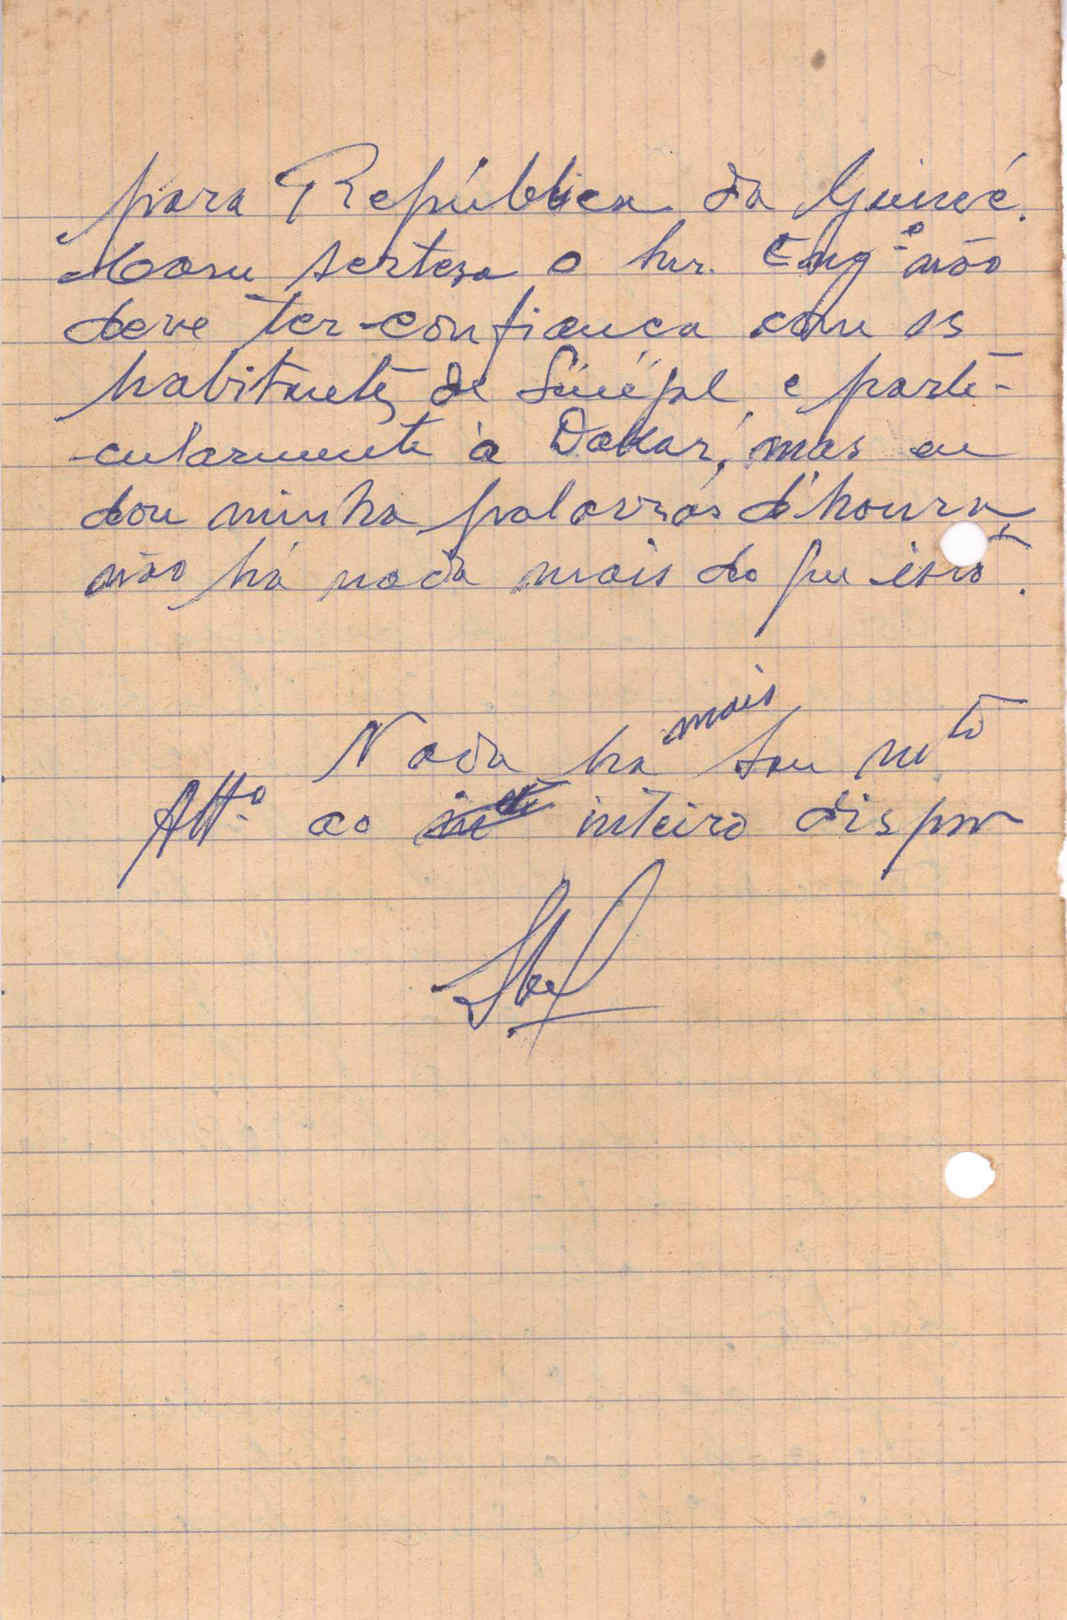 para República da Guiné.
Com serteza o snr. Eng.º não
deve ter confiança com os
habitantes de Sénégal e parti-
cularmente à Dakar, mas eu
dou minha palavras d'honra,
não há nada mais do que isso.
Nada há mais sou mtº
Attº. ao inteiro dispor